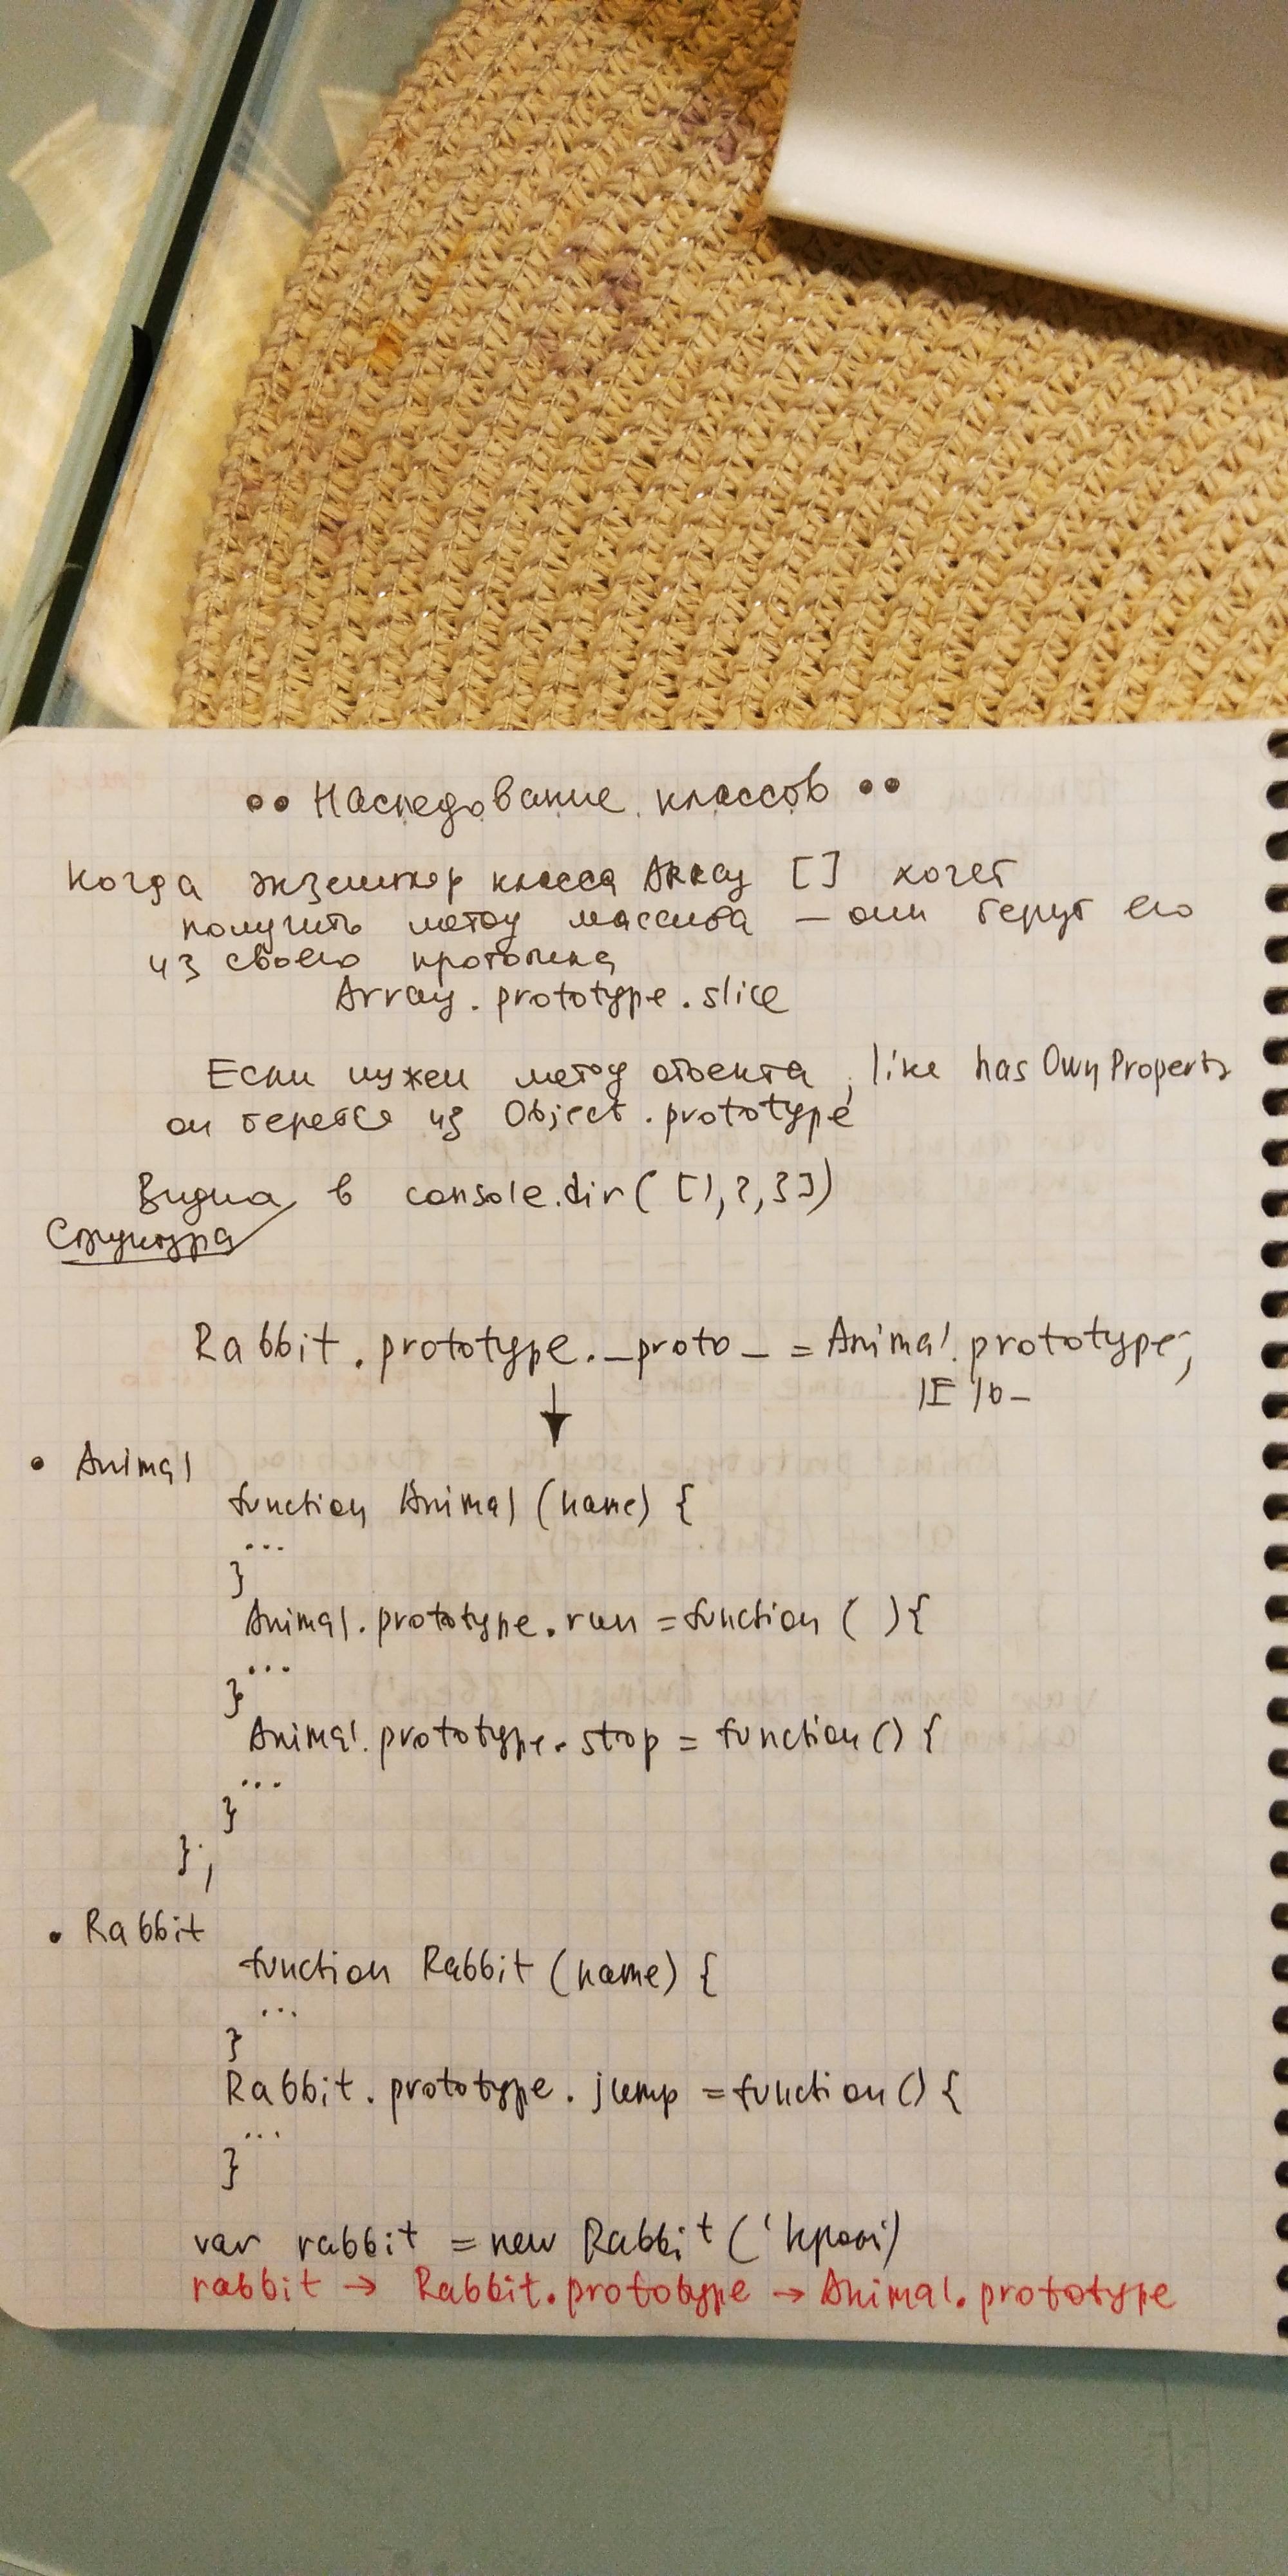 •• Наследование классов ••
Когда экземпляр класса Array [] хочет
получить метод массива – они берут его
из своего прототипа
Array.prototype.slice
Если нужен метод объекта, like hasOwnProperty
он берется из Object.prototype
Видна в console.dir([1,2,3])
Структура
Rabbit.prototype._proto_ = Animal.prototype;
IE 10–
↓
• Animal
function Animal (name) {
...
}
Animal.prototype.run = function ( ){
...
}
Animal.prototype.stop = function() {
...
}
};
• Rabbit
function Rabbit (name) {
...
}
Rabbit.prototype.jump = function() {
...
}
var rabbit = new Rabbit ('
rabbit → Rabbit.prototype → Animal.prototype